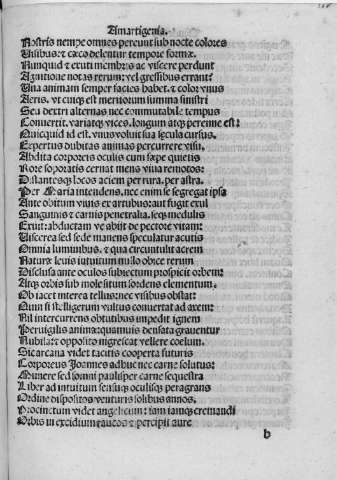 Amartigenia.
Nostris nempe omnes pereunt sub nocte colores
Visibus: & cæco delentur tempore formæ.
Nunquid & exuti membris ac viscere perdunt
Agnitione notas rerum: vel gressibus errant?
Una animam semper facies habet. & color unus
Aeris. ut cuiq; est meritorum summa sinistri
Seu dextri alternas nec commutabile tempus
Convertit. variatq; vices. longum atq; perenne est:
Quicquid id est. unus volvit sua sęcula cursus.
Expertus dubitas animas percurrere visu.
Abdita corporeis oculis cum sæpe quietis
Rore soporatis cernat mens viva remotos:
Distantesq; locos aciem per rura. per astra.
Per Maria intendens. nec enim se segregat ipsa
Ante obitum vivis ex artubus: aut fugit exul
Sanguinis & carnis penetralia. seq; medulis
Eruit: abductam ve abiit de pectore vitam:
Viscerea sed sede manens speculatur acutis
Omnia luminibus. & qua circuntulit acrem
Naturæ levis intuitum nullo obice rerum
Disclusa ante oculos subiectum prospicit orbem:
Atq; orbis sub mole situm sordens elementum.
Ob iacet interea tellus: nec visibus obstat:
Quin si stelligerum vultus convertat ad axem:
Nil intercurrens obtutibus impedit ignem
Pervigilis animæ: quamuis densata graventur
Nubila: & opposito nigrescat vellere coelum.
Sic arcana videt tacitis cooperta futuris
Corporeus Joannes adhuc nec carne solutus:
Munere sed somni paulisper carne sequestra
Liber ad intuitum sensusq; oculisq; peragrans
Ordine dispositos venturis solibus annos.
Procinctum videt angelicum: iam iamq; cremandi
Orbis in excidium raucos & percipit aure
b